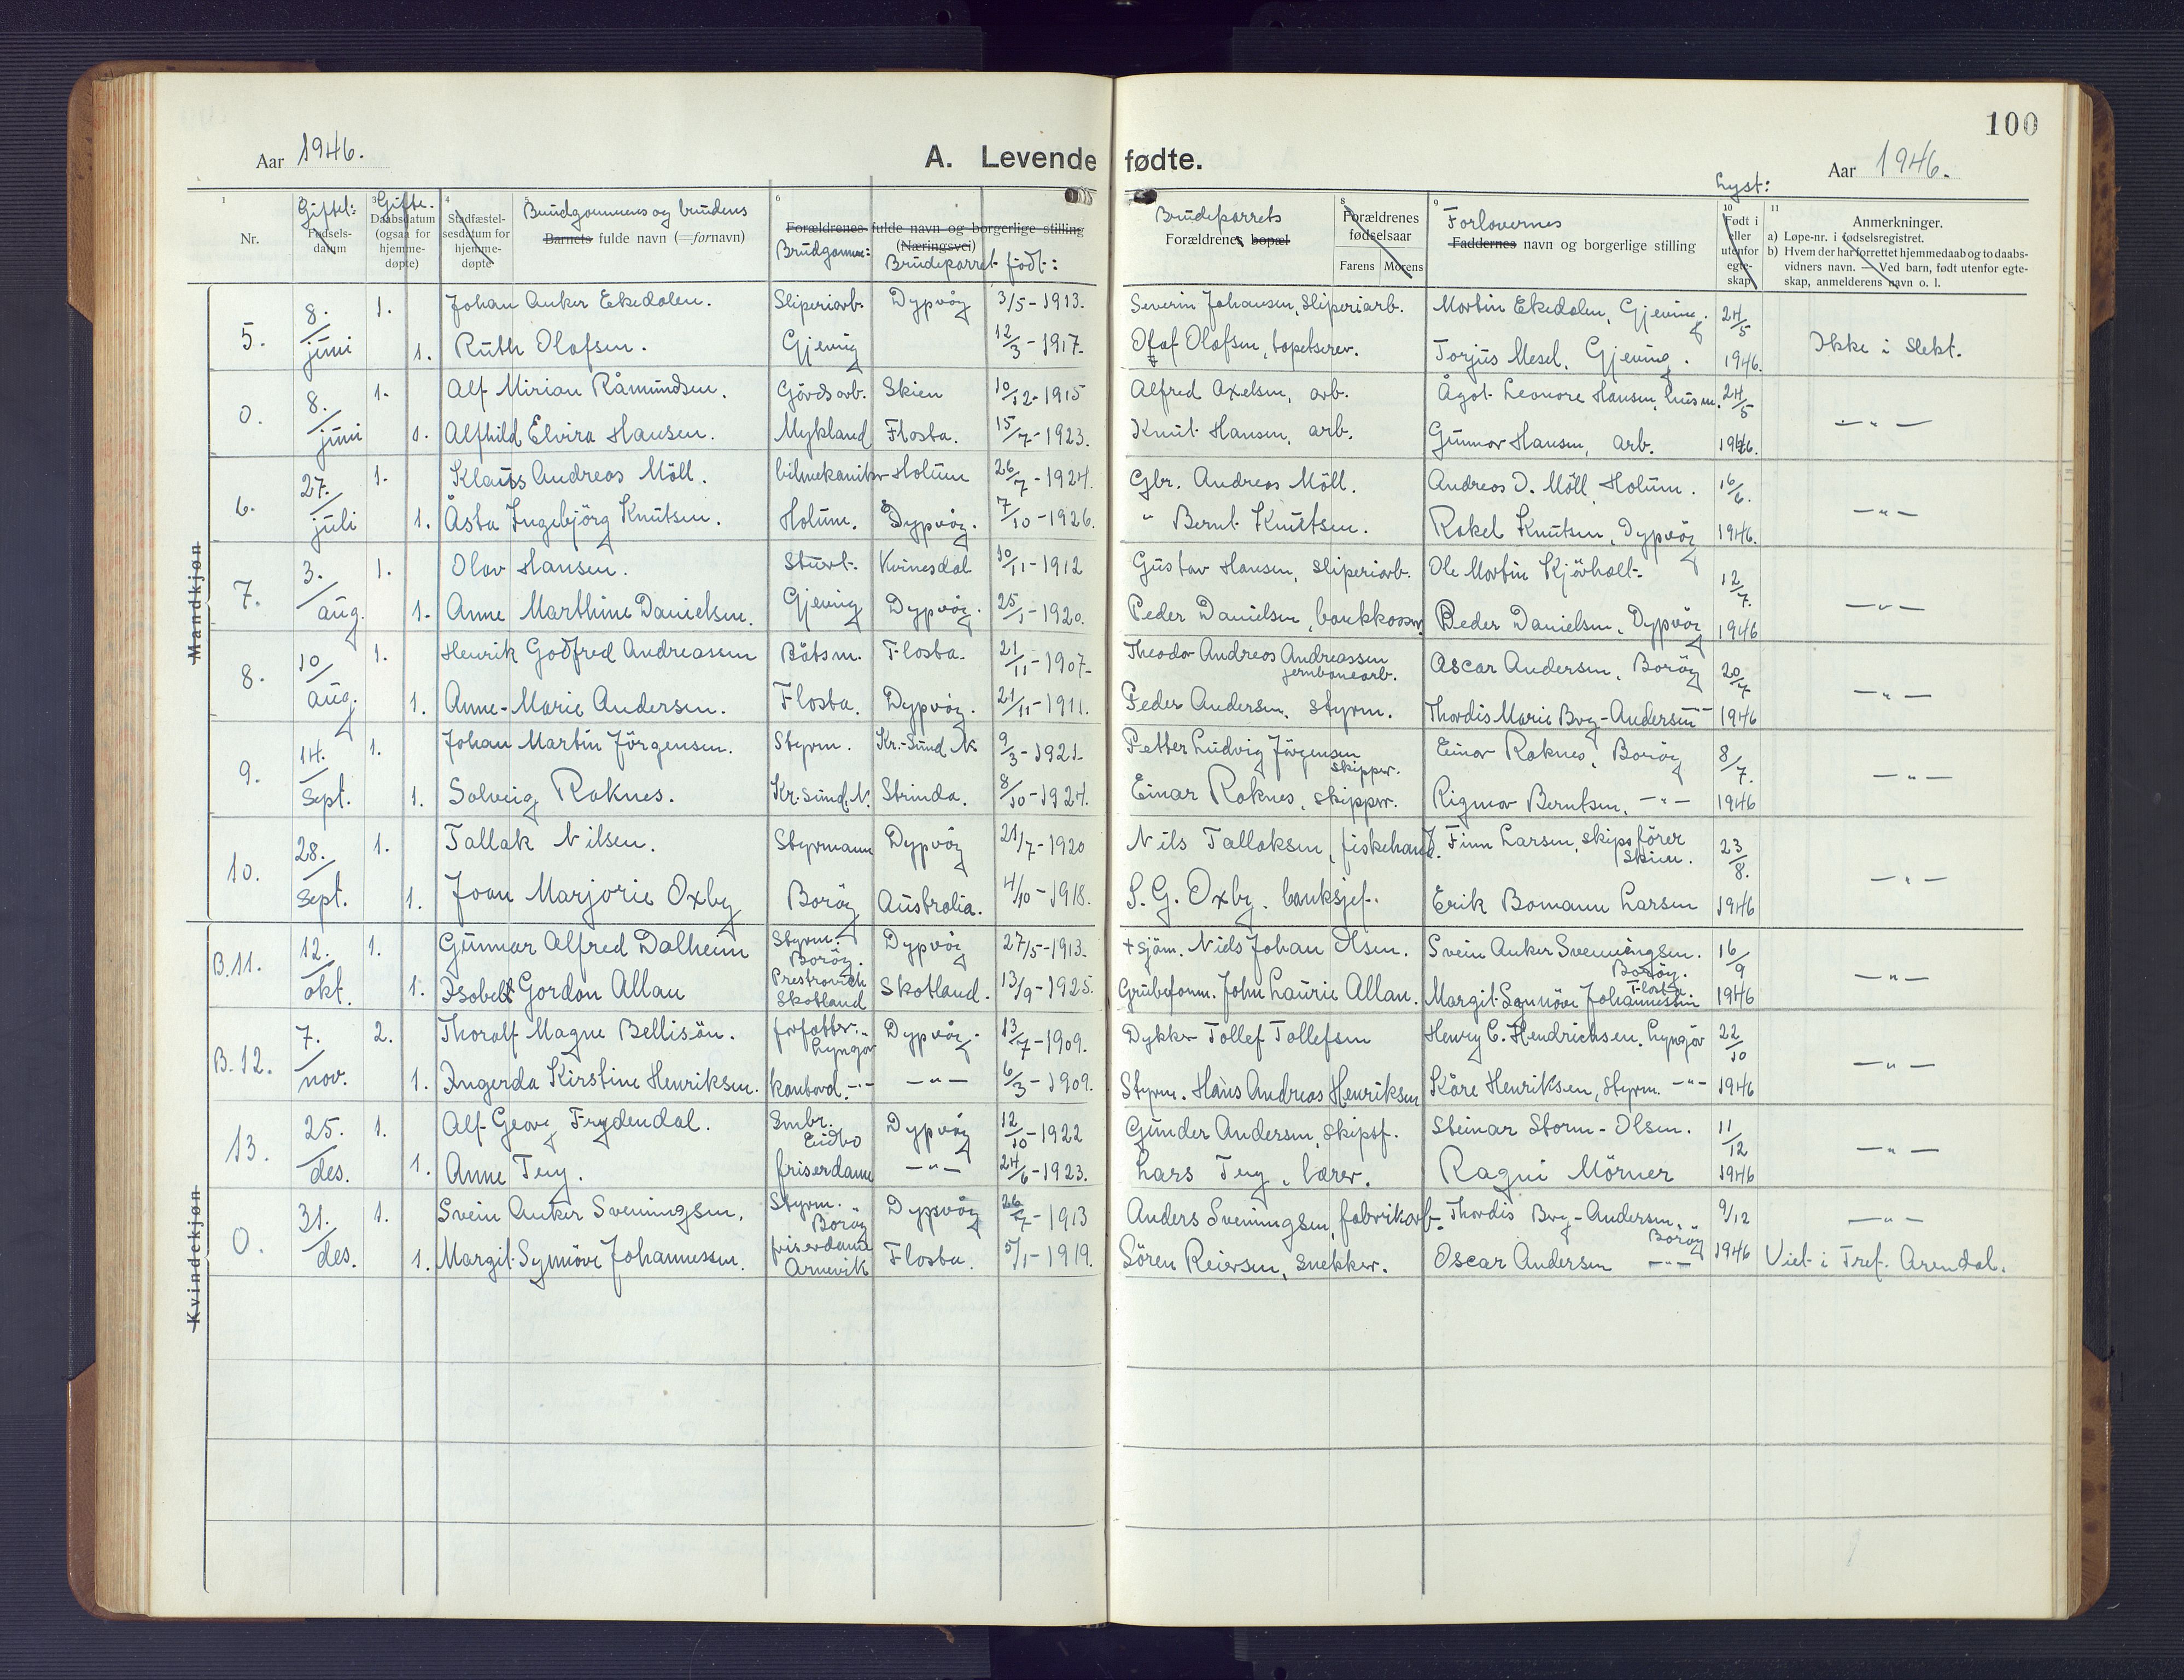 100
Aar 1946.
A. Levende fødte.
Aar 1946.
Lyst:
1
Nr.
Giftet:
Fødsels-
datum
3 Gifte.
Daabsdatum
(ogsaa for
hjemme-
døpte)
4
Stadfæstel-
sesdatum for
hjemme-
døpte
5
Brudgommens og brudens
Barnets fulde navn (=fornavn)
6
Forældrenes fulde navn og borgerlige stilling
(Næringsvei)
Brudgommen:
Brudeparret født:
Brudeparrets
Forældrenes bopæl
8
Forældrenes
fødselsaar
Farens Morens
9
Forlovernes
Faddernes navn og borgerlige stilling
10
Født i
eller
utenfor
egte-
skap
11
Anmerkninger.
a) Løpe-nr. i fødselsregistret.
b) Hvem der har forrettet hjemmedaab og to daabs-
vidners navn. — Ved barn, født utenfor egte-
skap, anmelderens navn o. l.
Mandkjøn
5. 8./juni 1. Johan Anker Ekedalen. Sliperiarb. Dypvåg 3/5-1913. Severin Johansen, Sliperiarb. Martin Ekedalen, Gjeving. 24/5
1. Ruth Olafsen. Gjeving 12/3-1917. Olaf Olafsen, tapetserer. Torjus Mesel, Gjeving. 1946. Ikke i slekt.
0. 8./juni 1. Alf Mirian Råmundsen. Gårdsarb. Skien 10/12-1915 Alfred Axelsen, arb. Ågot Leonore Hansen, husm. 24/5
1. Alfhild Elvira Hansen. Mykland Flosta. 15/7-1923. Knut Hansen, arb. Gunnar Hansen, arb. 1946. -"-
6. 27./juli 1. Klaus Andreas Möll. bilmekaniker Holum 26/7-1924. Gbr. Andreas Möll. Andreas D. Möll, Holum. 16/6.
1. Åsta Ingebjörg Knutsen. Holum. Dypvåg. 7/10-1926. " Bernt Knutsen. Rakel Knutsen, Dypvåg 1946. -"-
7. 3./aug. 1. Olav Hansen. Stuert. Kvinesdal 10/11-1912 Gustav Hansen, Sliperiarb. Ole Martin Kjövholt 12/7.
1. Anne Marthine Danielsen. Gjeving Dypvåg. 25/1-1920. Peder Danielsen, bankkasser. Peder Danielsen, Dypvåg 1946 -"-
8. 10/aug. 1. Henrik Godfred Andreassen Båtsm. Flosta. 21/11-1907- Theodor Andreas Andreassen
jernbanearb. Oscar Andersen, Boröy 20/7
1. Anne-Marie Andersen. Flosta. Dypvåg. 21/11-1911. Peder Andersen, styrm. Thordis Marie Bry-Andersen 1946 -"-
9. 14./sept. 1. Johan Martin Jörgensen. Styrm. Kr.-Sund N. 9/3-1921- Petter Ludvig Jörgensen
skipper. Einar Raknes, Boröy 8/7.
1. Solveig Raknes. Kr.sund.N. Strinda. 8/10-1924. Einar Raknes, skipper. Rigmor Berntsen, -"- 1946 -"-
10. 28./sept. 1. Tallak Nilsen. Styrmann Dypvåg 21/7-1920 Nils Tallaksen, fiskehand. Finn Larsen, skipsförer
Skien. 23/8.
1. Joan Marjorie Oxby Boröy Australia. 4/10-1918. S. G. Oxby. banksjef. Erik Bomann Larsen 1946 -"-
Kvindekjøn
B.11. 12./okt. 1. Gunnar Alfred Dalheim Styrm.
Boröy. Dypvåg 27/5-1913. + sjöm. Niels Johan Olsen. Svein Anker Svenningsen.
Boröy. 16/9
1. Isobel Gordon Allan Prestrovich
Skotland Skotland. 13/9-1925. Grubeform. John Laurie Allan. Margit Synnöve Johannessen
Flosta 1946 -"-
B.12. 7./nov. 2. Thoralf Magne Bellisön. forfatter.
Lyngör Dypvåg. 13/7-1909. Dykker Tollef Tollefsen Henry C. Hendrichsen, Lyngör 22/10
1. Ingerda Kirstine Henriksen. kontord. -"- -"- 6/3-1909. Styrm. Hans Andreas Henriksen Kåre Henriksen, styrm. -"- 1946 -"-
13. 25./des. 1. Alf Georg Frydendal. Smbr.
Eidbo Dypvåg 12/10-1922 Gunder Andersen, skipsf. Steinar Storm-Olsen. 11/12
1. Anne Tey. friserdame -"- 24/6-1923. Lars Tey, lærer. Ragni Mörner 1946 -"-
0. 31./des. 1. Svein Anker Svenningsen. Styrm.
Boröy Dypvåg 26/7-1913 Anders Svenningsen, fabrikarb. Thordis Bry-Andersen,
Boröy 9/12 -"-
1. Margit Synnöve Johannessen. friserdame
Arnevik Flosta. 5/1-1919. Sören Reiersen, snekker. Oscar Andersen -"- 1946 Viet i Tref. Arendal.